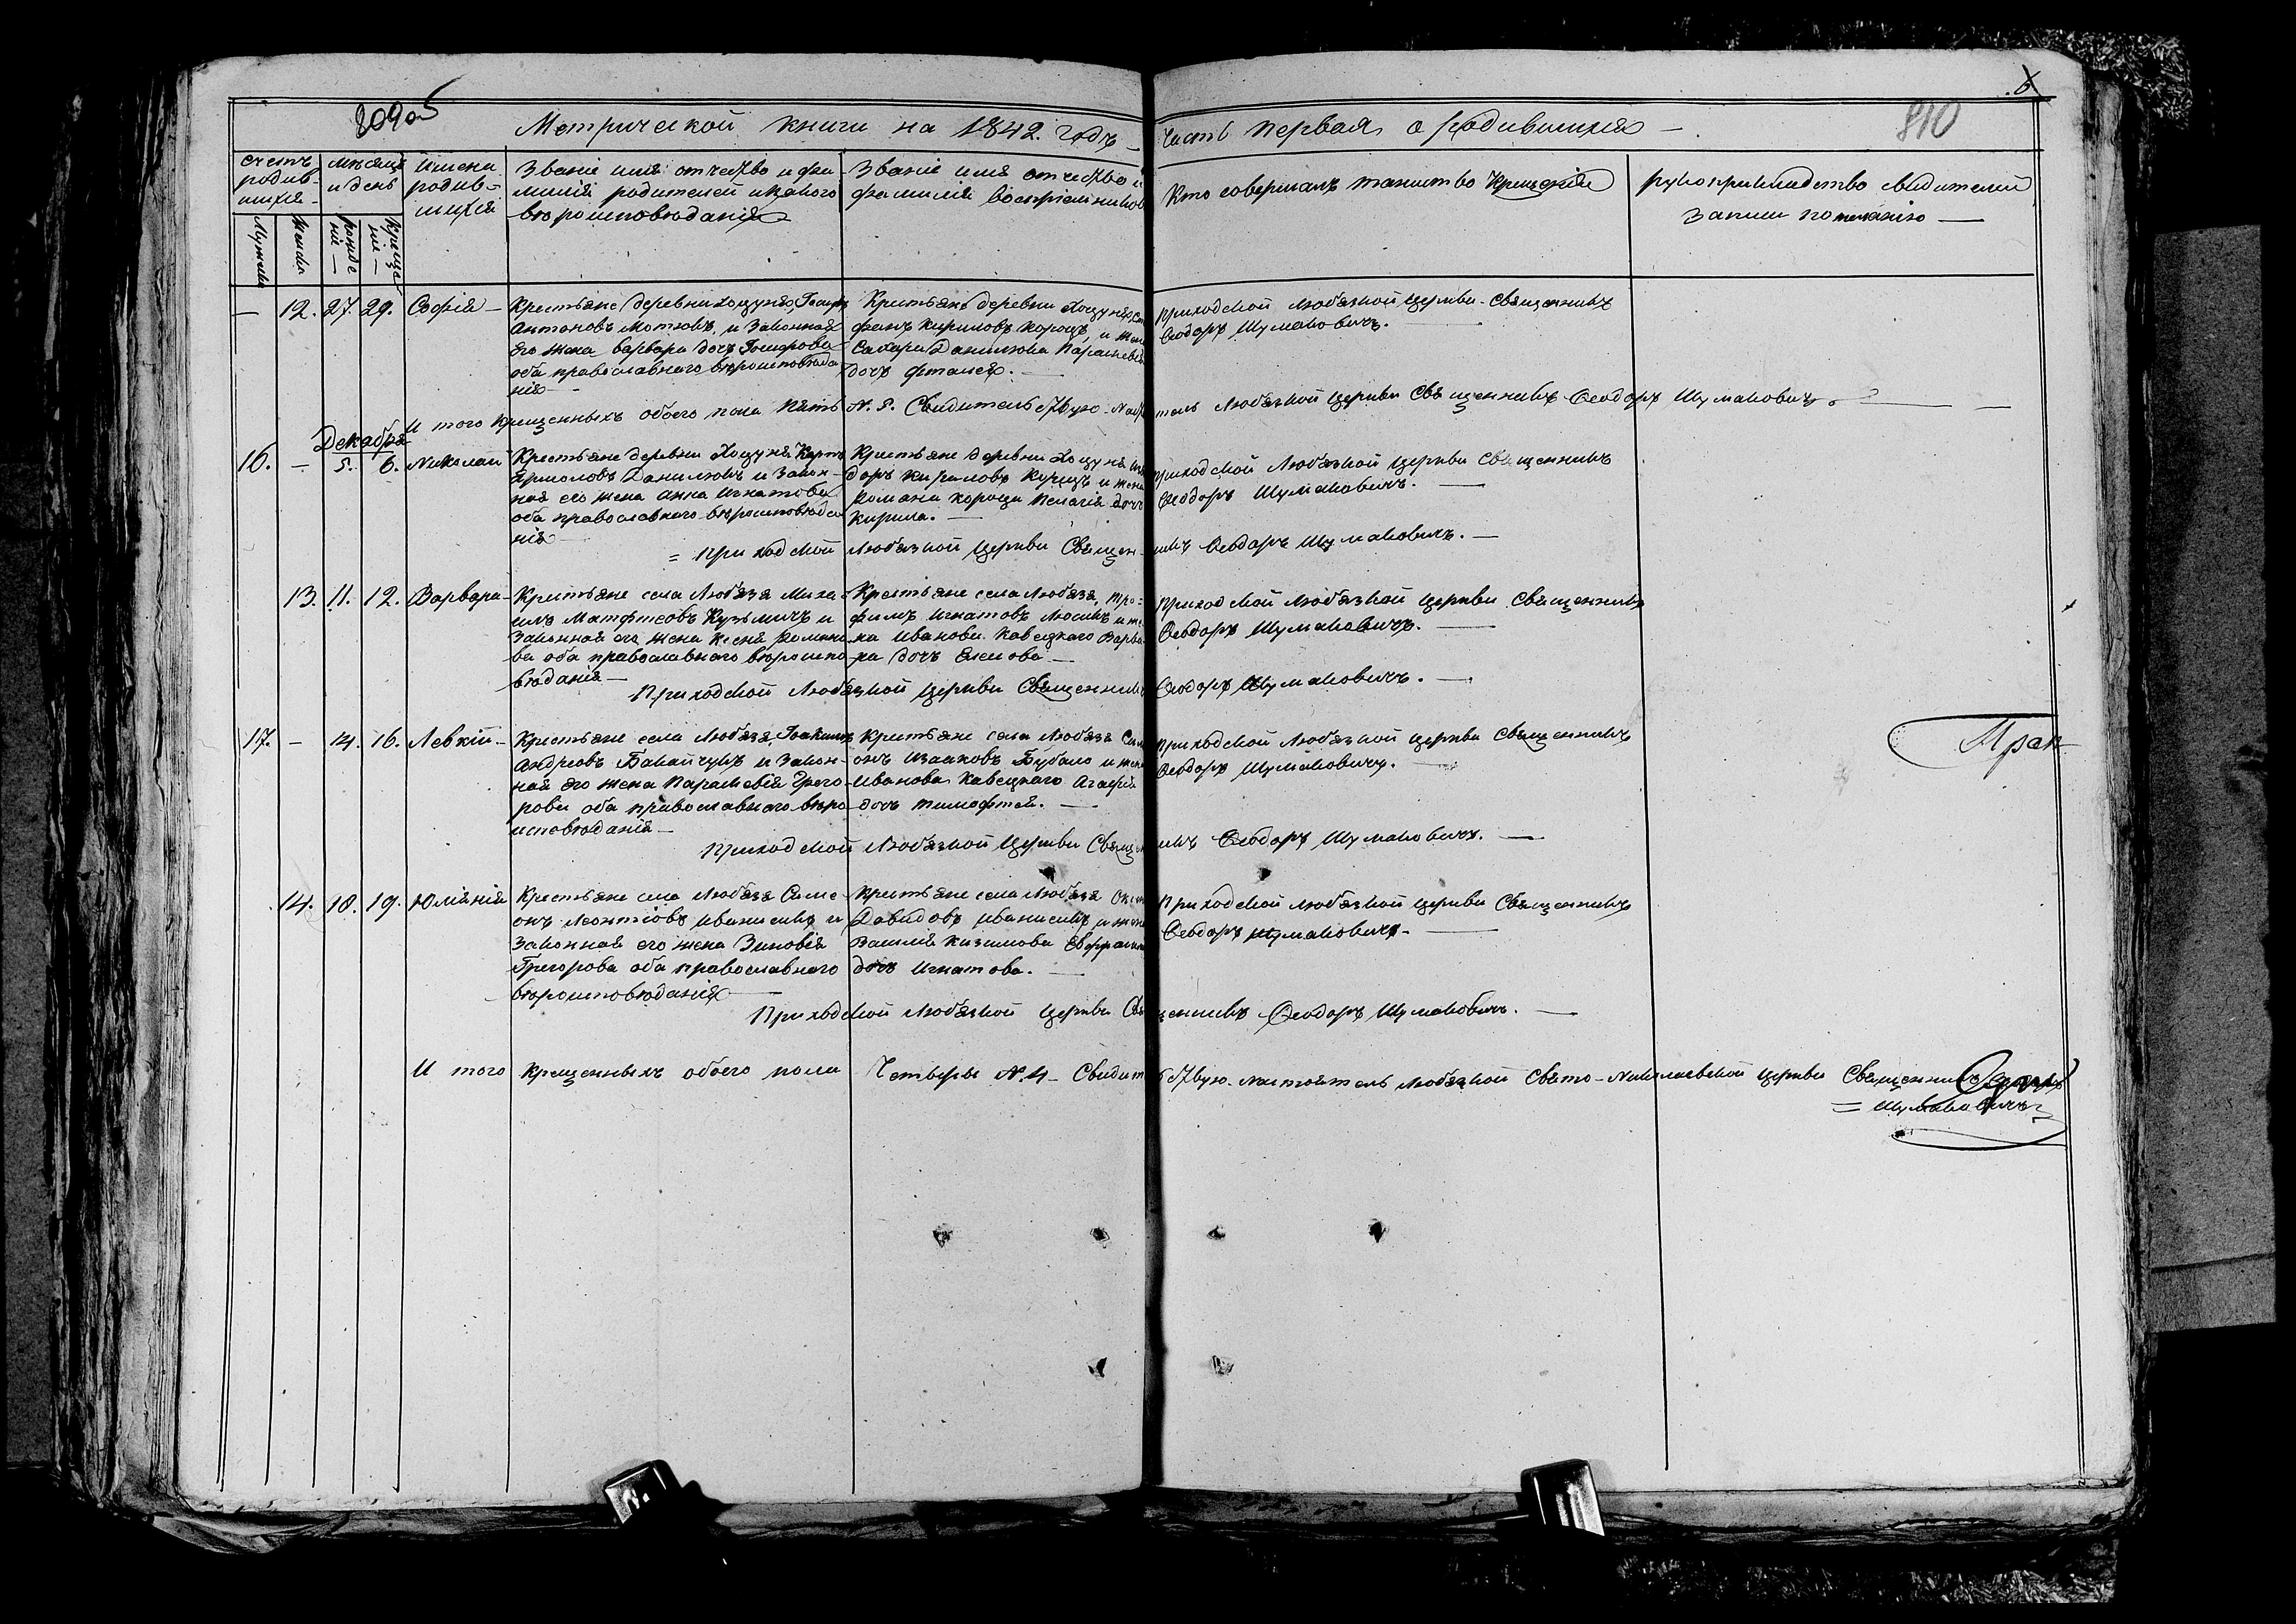 809об
810
Метрической книги на 1842. годъ – Часть первая о родившихся –.
счетъ родив-шихся –
Мужеска
Женска
мѣсяцъ и день
рожде нiе –
креще нiе –
имена родив=шихся
Званiе имя отчество и фа-
милiя родителей и какого
вѣроисповѣданiя
Званiе имя отчество и
фамилiя воспрiемниковъ
Кто совершалъ таинство Крещенiя
рукоприкладство свидетелей
записи по желанiю –
– 12. 27. 29. Софiя –
Крестьяне деревни Хоцуня,
Антоновъ Мотковъ, и Законная
его жена варвара дочь
оба православнаго вѣроисповѣда
нiя –
Крестьяне деревни Хоцуня
Кириловъ Корощъ, и
Данилюка Параскевiя
дочь
Приходской Любязкой Церкви Священникъ
Ѳеодоръ Шумаковичъ. –
И того Крещенныхъ обоего пола Пять N. 5. Свидительствую Любязкой Церкви Священникъ Ѳеодоръ Шумаковичъ. –
Декабря
16. – 5. 6. Николай
Крестьяне деревни Хоцуня
Ярмоловъ Данилюкъ и Закон-
ная его жена анна Игнатова
оба православнаго вѣроисповѣда
нiя
Крестьяне деревни Хоцуня
Кириловъ Корощъ и жена
Романа Короща Пелагiя дочь
Кирила. –
Приходской Любязкой Церкви Священникъ
Ѳеодоръ Шумаковичъ. –
= Приходской Любязкой Церкви Священ-никъ Ѳеодоръ Шумаковичъ. –
13. 11. 12. Варвара –
Крестьяне села Любязя Миха
илъ Матфеевъ Кузьмичъ и
Законная его жена Ксенiя Романо
ва оба православнаго вѣроиспо
вѣданiя –
Крестьяне села Любязя, Тро=
фимъ Игнатовъ и же
на Иванова Кавецкаго Варва
ра дочь –
Приходской Любязкой Церкви Священникъ
Ѳеодоръ Шумаковичъ. –
Приходской Любязкой Церкви Священникъ Ѳеодоръ Шумаковичъ. –
17. – 14. 16. Левкiй –
Крестьяне села Любязя, Iоакимъ
Андреовъ и Закон-
ная его жена Параскевiя Григо
рова оба православнаго вѣро
исповѣданiя –
Крестьяне села Любязя Сим
онъ Исааковъ Бубало и жена
Иванова Кавецкаго Агафiя
дочь Тимофтея. –
Приходской Любязкой Церкви Священникъ
Ѳеодоръ Шумаковичъ. –
Приходской Любязкой Церкви Священникъ Ѳеодоръ Шумаковичъ. –
14. 18. 19. Юлiянiя
Крестьяне села Любязя Симе
онъ Леонтiовъ Иванисикъ и
Законная его жена Зиновiя
Григорова оба православнаго
вѣроисповѣданiя –
Крестьяне села Любязя
Давидовъ Иванисикъ и жена
Василiя Казимова
дочь Игнатова. –
Приходской Любязкой Церкви Священникъ
Ѳеодоръ Шумаковичъ. –
Приходской Любязкой Церкви Священникъ Ѳеодоръ Шумаковичъ. –
И того крещенныхъ обоего пола Четыры N. 4 – Свидительствую. Настоятель Любязкой Свято-Николаевской Церкви Священникъ
= Шумаковичъ